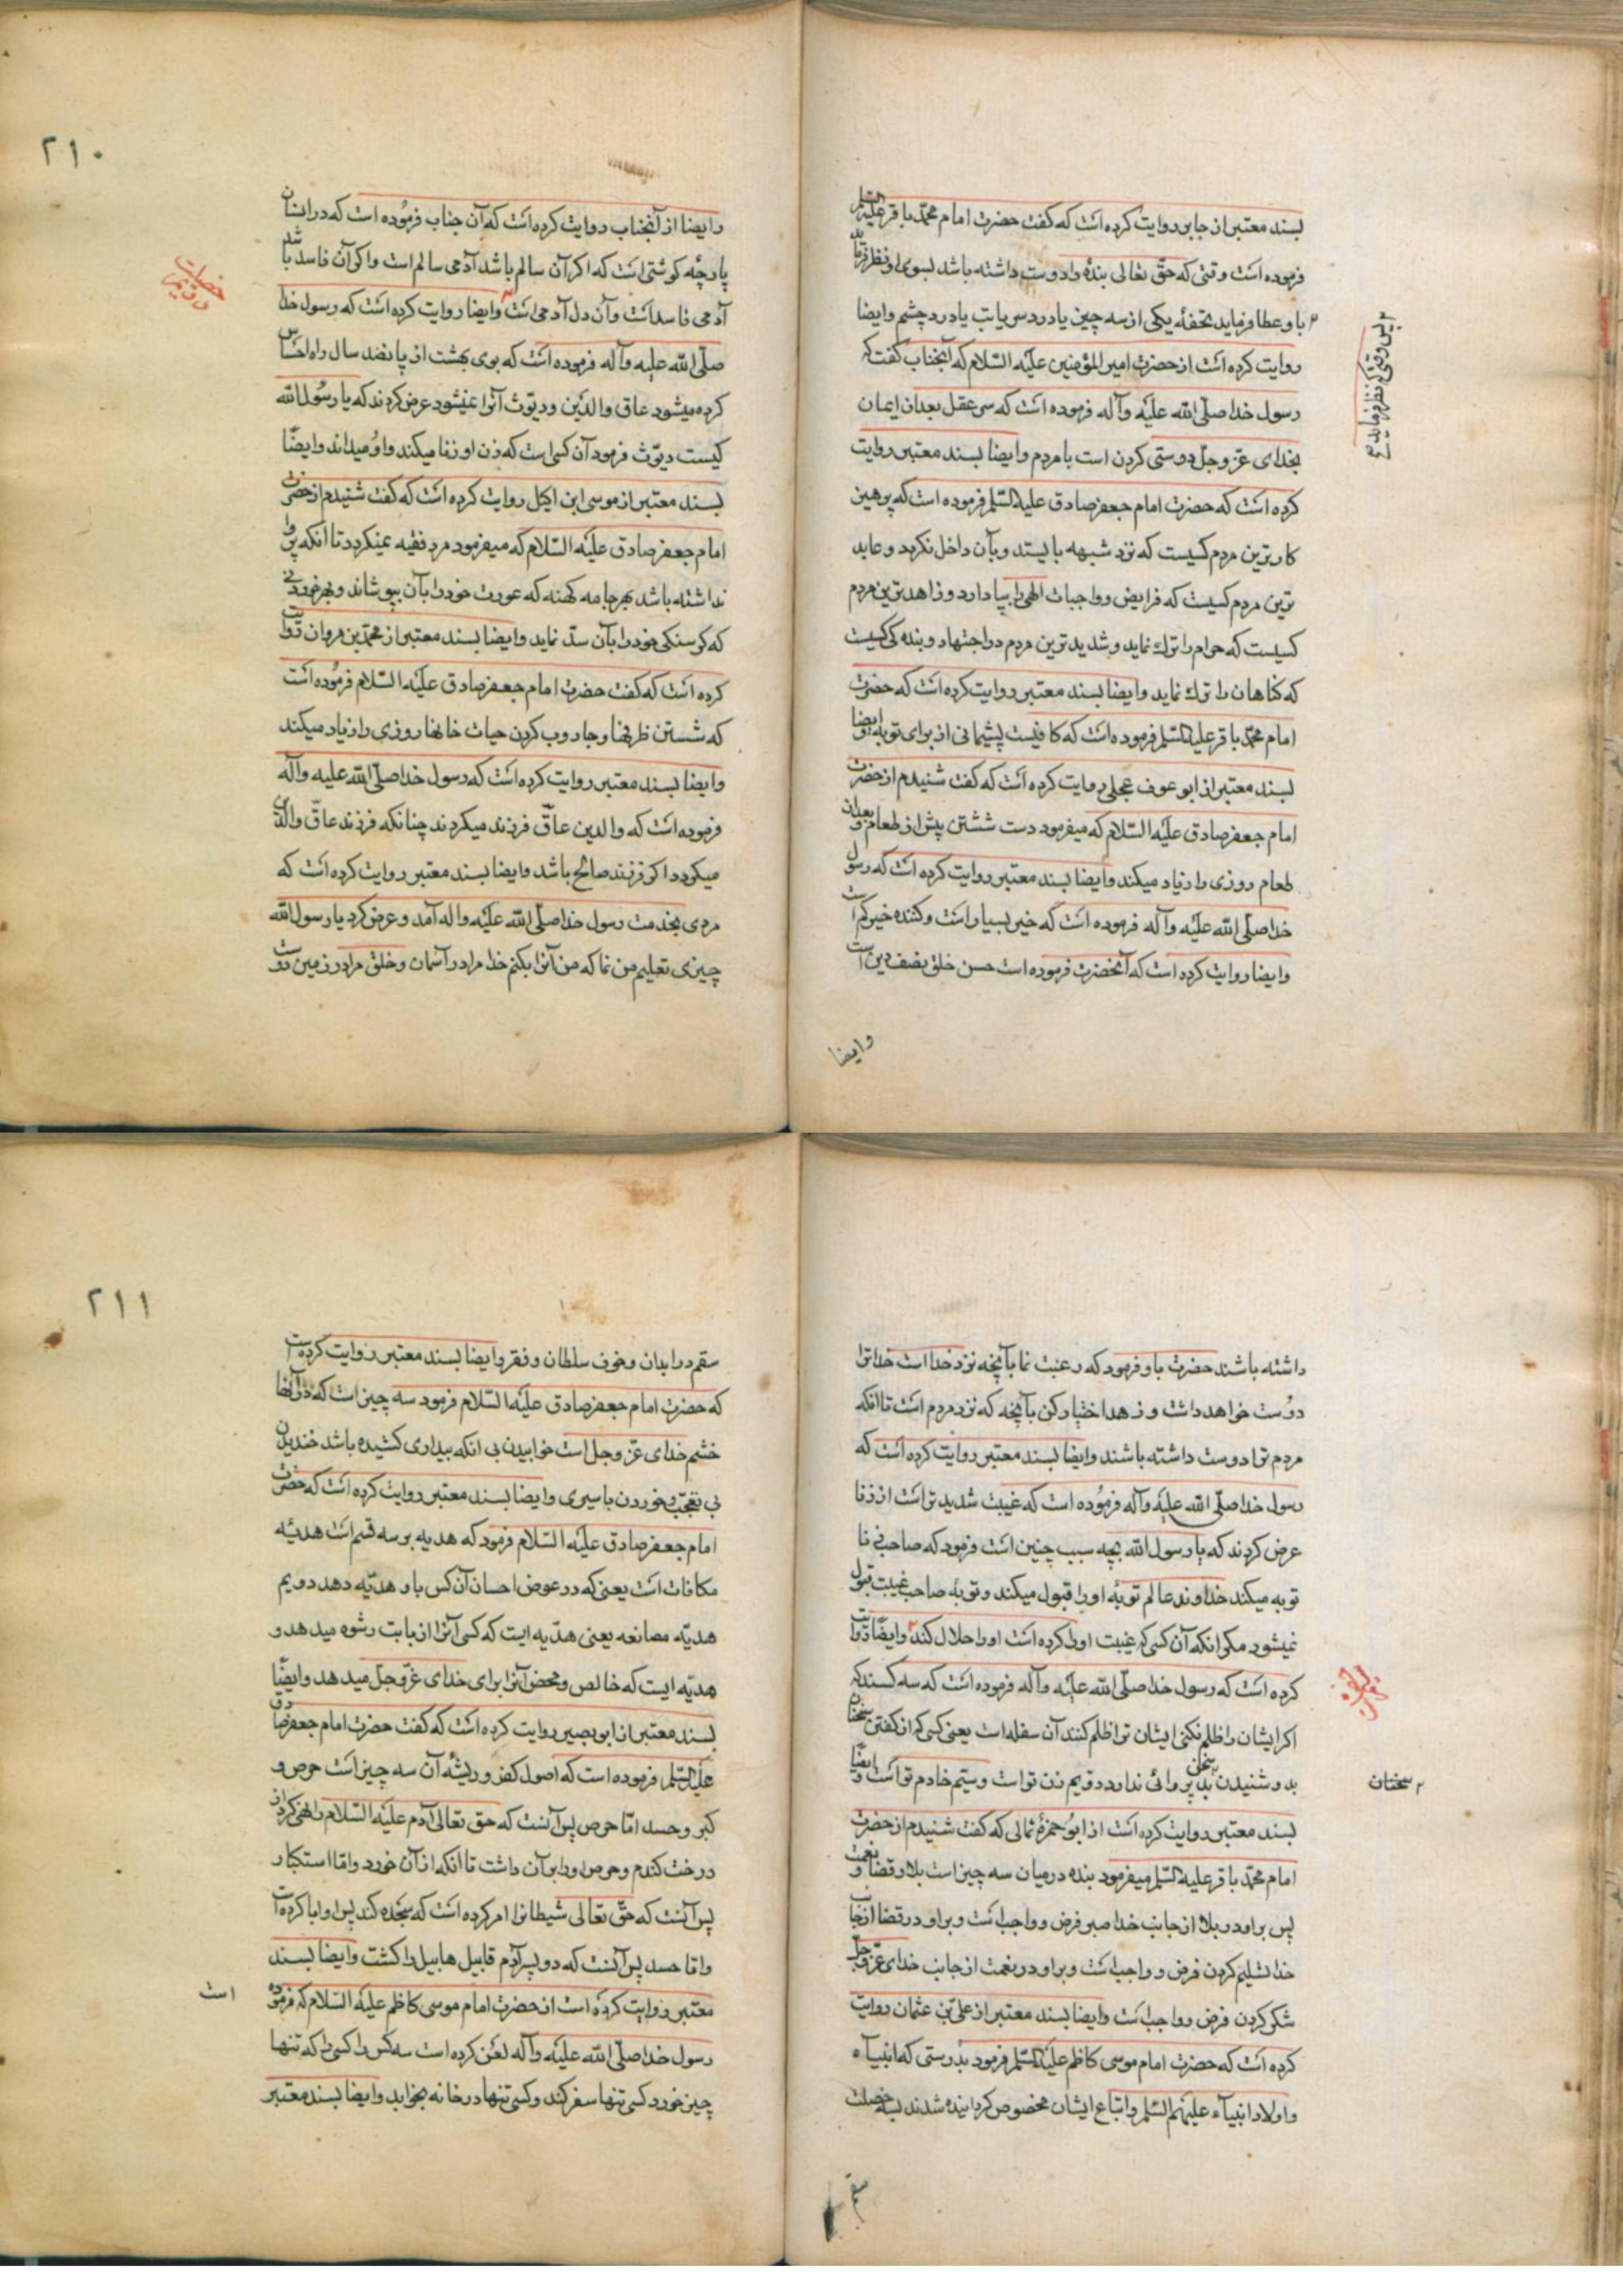 بسند معتبر از جابر روایت کرده است که گفت حضرت امام محمد باقر علیه السلم
فرموده است وقتی که حق تعالی بندهٔ را دوست داشته باشد بسوی او نظر فرماید
با و عطا فرماید تحفهٔ یکی از سه چیز یا درد سر یا تب یا درد چشم وایضا
۲ پس وقتی که نظر فرماید ع
روایت کرده است از حضرت امیر المؤمنین علیه السلام که آنجناب گفت که
رسول خدا صلی الله علیه وآله فرموده است که سر عقل بعد از ایمان
بخدای عز وجل دوستی کردن است با مردم وایضا بسند معتبر روایت
کرده است که حضرت امام جعفر صادق علیه السلم فرموده است که پرهیز
کارترین مردم کسیست که نزد شبهه بایستد وبآن داخل نکردد وعابد
ترین مردم کسیست که فرایض وواجبات الهی را بپا دارد وزاهدترین مردم
کسیست که حرام را ترك نماید وشدیدترین مردم در اجتهاد وبندهکی کسیست
که کناهان را ترك نماید وایضا بسند معتبر روایت کرده است که حضرت
امام محمد باقر علیه السلم فرموده است که کافیست پشیمانی از برای توبه وایضا
بسند معتبر از ابو عوف عجلی روایت کرده است که گفت شنیدم از حضرت
امام جعفر صادق علیه السلام که میفرمود دست شستن پیش از طعام وبعد از
طعام روزی را زیاد میکند وایضا بسند معتبر روایت کرده است که رسول
خدا صلی الله علیه وآله فرموده است که خیر بسیار است وکننده خیر کم است
وایضا روایت کرده است که آنحضرت فرموده است حسن خلق نصف دین است
وایضا
۲۱۰
وایضا از آنجناب روایت کرده است که آن جناب فرموده است که در انسان
پارچه کوشتی است که اکر آن سالم باشد آدمی سالم است واکر آن فاسد باشد
آدمی فاسد است وآن دل آدمی است وایضا روایت کرده است که رسول خدا
صلی الله علیه وآله فرموده است که بوی بهشت از پانصد سال راه احساس
کرده میشود عاق والدین ودیوث آنرا نمیشنود عرض کردند که یا رسول الله
کیست دیوث فرمود آن کس است که زن او زنا میکند واو میداند وایضا
بسند معتبر از موسی ابن اکیل روایت کرده است که گفت شنیدم از حضرت
امام جعفر صادق علیه السلام که میفرمود مرد فقیه نمیکردد تا آنکه پروا
نداشته باشد بهر جامه کهنه که عورت خود را بآن بپوشاند وبهر خوردنی
که کرسنکی خود را بآن سد نماید وایضا بسند معتبر از محمد بن مروان روایت
کرده است که گفت حضرت امام جعفر صادق علیه السلام فرموده است
که شستن ظرفها وجاروب کردن حیات خانها روزی را زیاد میکند
وایضا بسند معتبر روایت کرده است که رسول خدا صلی الله علیه وآله
فرموده است که والدین عاق فرزند میکردند چنانکه فرزند عاق والدین
میکردد اکر فرزند صالح باشد وایضا بسند معتبر روایت کرده است که
مردی بخدمت رسول خدا صلی الله علیه واله آمد وعرض کرد یا رسول الله
چیزی تعلیم من نما که من آنرا بکنم خدا مرا در آسمان وخلق مرا در زمین دوست
داشته باشند حضرت باو فرمود که رغبت نما بآنچه نزد خدا است خدا ترا
دوست خواهد داشت وزهد اختیار کن بآنچه که نزد مردم است تا آنکه
مردم ترا دوست داشته باشند وایضا بسند معتبر روایت کرده است که
رسول خدا صلی الله علیه وآله فرموده است که غیبت شدیدتر است از زنا
عرض کردند که یا رسول الله بچه سبب چنین است فرمود که صاحب زنا
توبه میکند خداوند عالم توبهٔ او را قبول میکند وتوبه صاحب غیبت قبول
نمیشود مکر آنکه آن کسی که غیبت او را کرده است او را حلال کند وایضا روایت
کرده است که رسول خدا صلی الله علیه وآله فرموده است که سه کسند که
اکر ایشان را ظلم نکنی ایشان ترا ظلم کنند آن سفله است یعنی کسی که از کفتن سخنان
بد وشنیدن سخنان بد پروائی ندارد دویم زن تو است وسیم خادم تو است وایضا
۲ سخنان
بسند معتبر روایت کرده است از ابو حمزهٔ ثمالی که گفت شنیدم از حضرت
امام محمد باقر علیه السلم میفرمود بنده در میان سه چیز است بلا وقضا ونعمت
پس بر او در بلا از جانب خدا صبر فرض وواجب است وبر او در قضا از جانب
خدا تسلیم کردن فرض وواجب است وبر او در نعمت از جانب خدای عز وجل
شکر کردن فرض وواجب است وایضا بسند معتبر از علی بن عثمان روایت
کرده است که حضرت امام موسی کاظم علیه السلم فرمود بدرستی که انبیآء
واولاد انبیآء علیهم السلم واتباع ایشان مخصوص کردانیده شدند بسه خصلت
سقم
۲۱۱
سقم در ابدان وخوف سلطان وفقر وایضا بسند معتبر روایت کرده است
که حضرت امام جعفر صادق علیه السلام فرمود سه چیز است که در آنها
خشم خدای عز وجل است خوابیدن بی انکه بیداری کشیده باشد خندیدن
بی تعجب وخوردن با سیری وایضا بسند معتبر روایت کرده است که حضرت
امام جعفر صادق علیه السلام فرمود که هدیه بر سه قسم است هدیهٔ
مکافات است یعنی که در عوض احسان آن کس باو هدیه دهد دویم
هدیه مصانعه یعنی هدیه ایست که کسی آنرا از بابت رشوه میدهد و
هدیه ایست که خالص ومحض آنرا برای خدای عز وجل میدهد وایضا
بسند معتبر از ابو بصیر روایت کرده است که گفت حضرت امام جعفر صادق
علیه السلم فرموده است که اصول کفر وریشهٔ آن سه چیز است حرص و
کبر وحسد اما حرص پس آنست که حق تعالی آدم علیه السلام را نهی کرد از
درخت کندم وحرص او را بر آن داشت تا آنکه از آن خورد واما استکبار
پس آنست که حق تعالی شیطانرا امر کرده است که سجده کند پس او ابا کرده است
واما حسد پس آنست که دو پسر آدم قابیل هابیل را کشت وایضا بسند
معتبر روایت کرده است از حضرت امام موسی کاظم علیه السلام که فرموده
است
رسول خدا صلی الله علیه وآله لعن کرده است سه کس را کسی را که تنها
چیز خورد کسی تنها سفر کند وکسی تنها در خانه بخوابد وایضا بسند معتبر